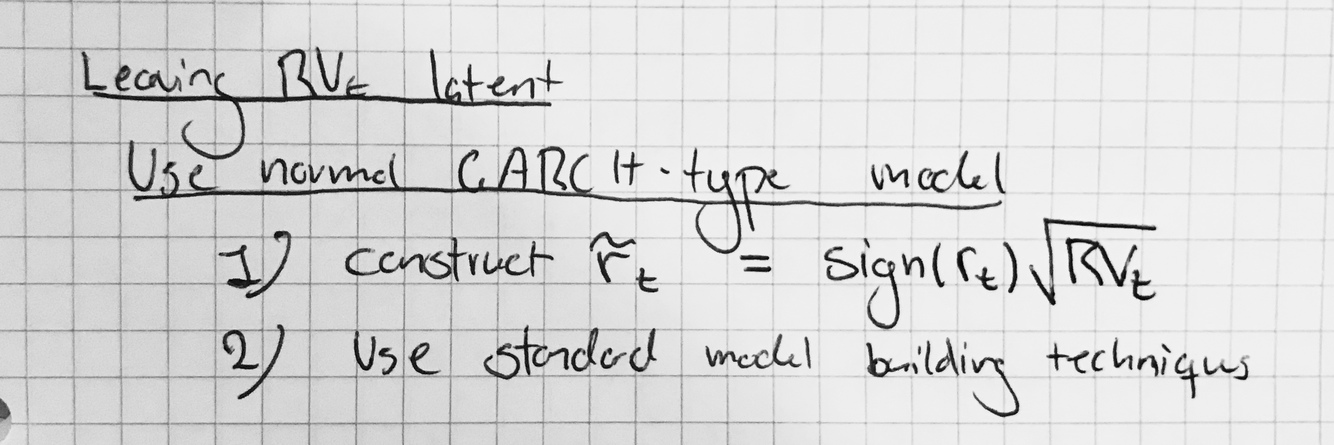 Leaving RVₜ latent
Use normal GARCH-type model
1) construct r̃ₜ = sign(rₜ)√RVₜ
2) Use standard model building techniques